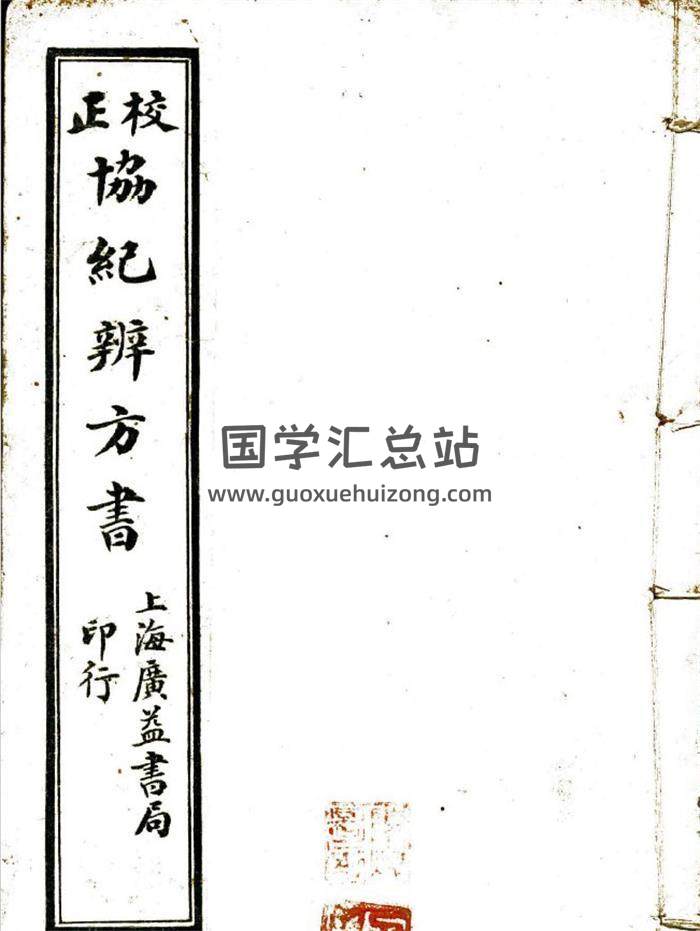 校正
協紀辨方書
上海廣益書局
印行
国学汇总站
www.guoxuehuizong.com